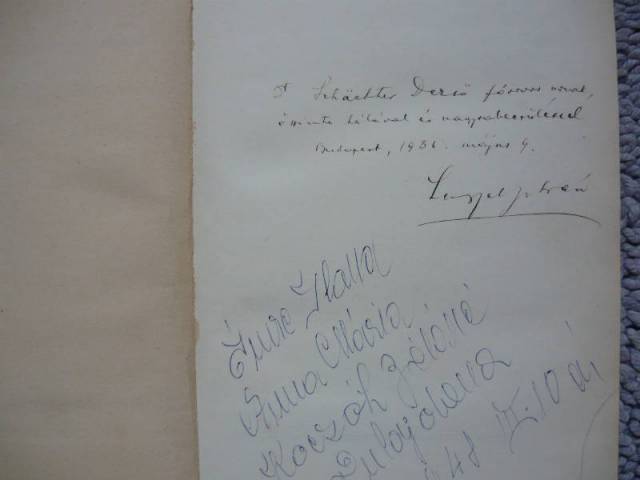 T. Schächter Dezső főorvos úrnak,
őszinte hálával és nagyrabecsüléssel
Budapest, 1936. május 9.
Lengyel István
Imre Ilona
Anna Mária
Koczák Zoltánné
Tulajdona
948 10